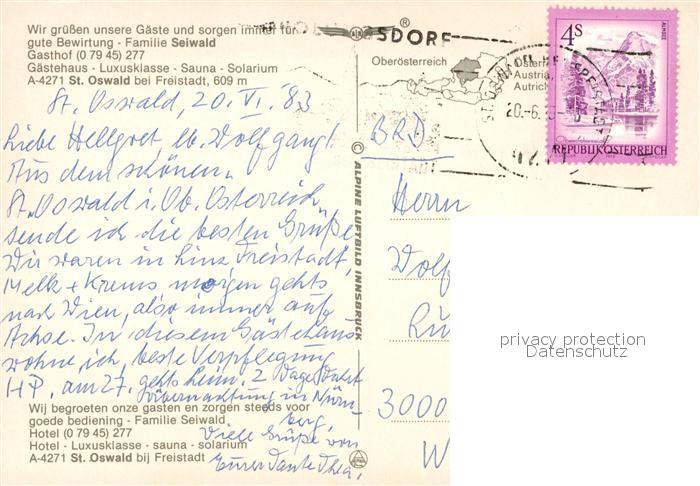 Wir grüßen unsere Gäste und sorgen immer für
gute Bewirtung - Familie Seiwald
Gasthof (0 79 45) 277
Gästehaus - Luxusklasse - Sauna - Solarium
A-4271 St. Oswald bei Freistadt, 609 m
St. Oswald, 20. VI. 83
Liebe Hellgret, lb. Wolfgang!
Aus dem schönen
St. Oswald i. Ob. Österreich
sende ich die besten Grüße
Wir waren in Linz Freistadt,
Melk + Krems morgen gehts
nach Wien, also immer auf
Achse. In diesem Gästehaus
wohne ich, beste Verpflegung
HP. am 27. gehts heim. 2 Tage Fahrt
Übernachtung in Nürn-
berg.
Viele Grüße von
Eurer Tante Thea.
Wij begroeten onze gasten en zorgen steeds voor
goede bediening - Familie Seiwald
Hotel (0 79 45) 277
Hotel - Luxusklasse - sauna - solarium
A-4271 St. Oswald bij Freistadt
© ALPINE LUFTBILD INNSBRUCK
®
SDORF
Oberösterreich
Österr
Austria,
Autric
20.-6.
4S
ALMSEE
REPUBLIK ÖSTERREICH
BRD
Herrn
3000
W
privacy protection
Datenschutz